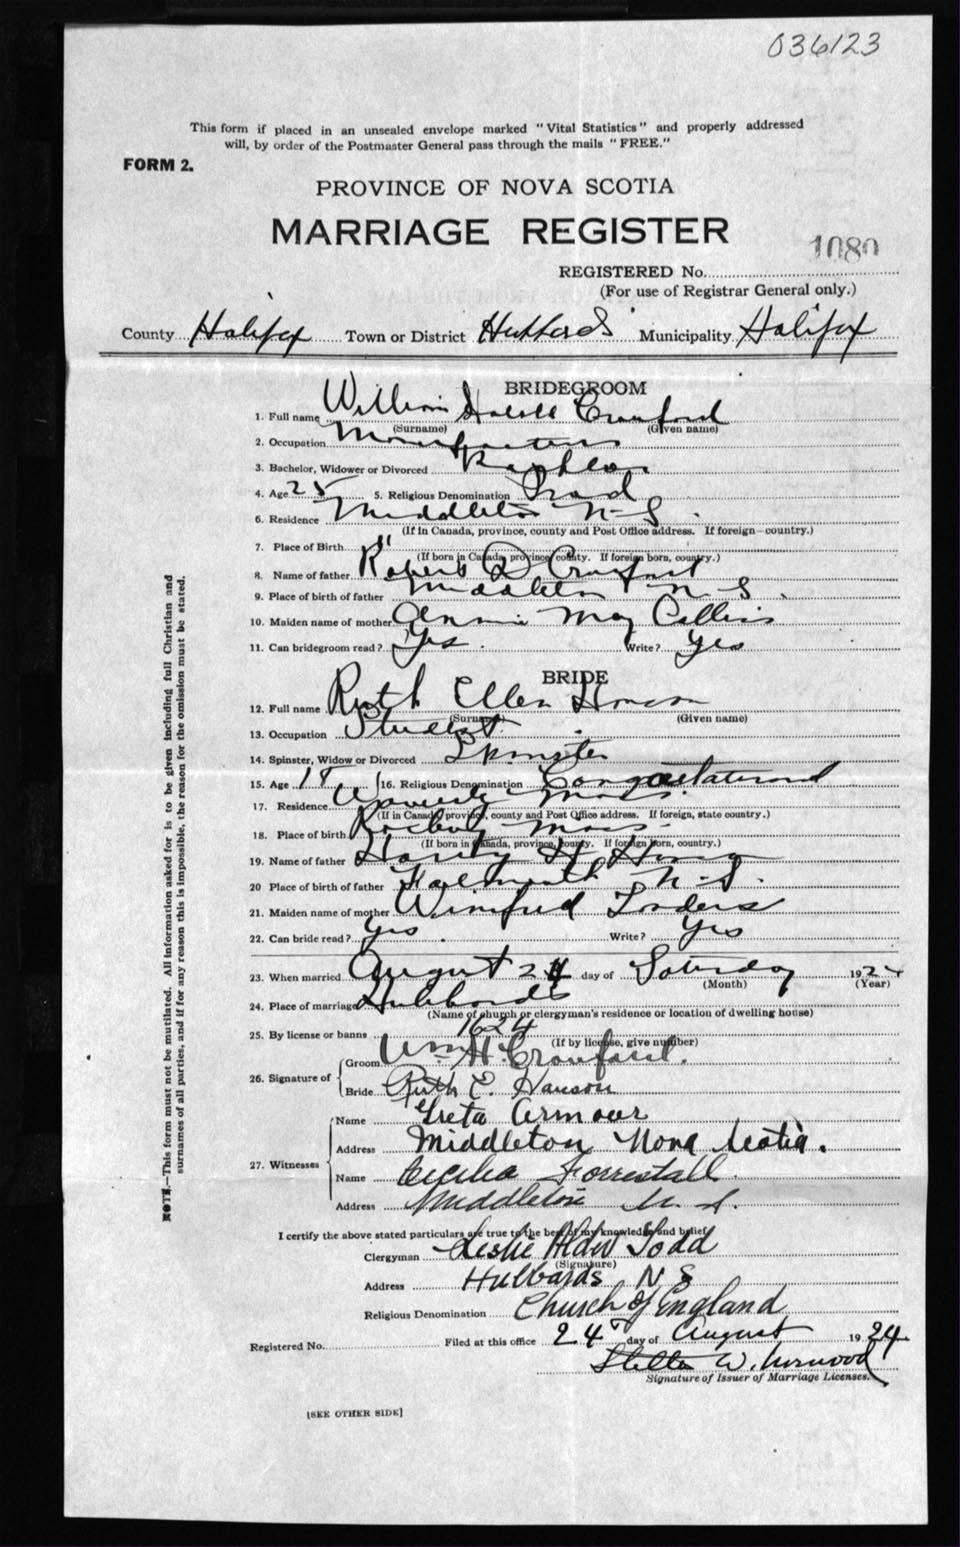 036123
This form if placed in an unsealed envelope marked "Vital Statistics" and properly addressed
will, by order of the Postmaster General pass through the mails "FREE."
FORM 2.
PROVINCE OF NOVA SCOTIA
MARRIAGE REGISTER
1080
REGISTERED No.
(For use of Registrar General only.)
County Halifax Town or District Municipality Halifax
BRIDEGROOM
1. Full name William Crawford
(Surname) (Given name)
2. Occupation
3. Bachelor, Widower or Divorced
4. Age 25 5. Religious Denomination
6. Residence Middleton N-S.
(If in Canada, province, county and Post Office address. If foreign—country.)
7. Place of Birth "
(If born in Canada, province, county. If foreign born, country.)
8. Name of father Robert D Crawford
9. Place of birth of father Middleton N-S.
10. Maiden name of mother May
11. Can bridegroom read? Yes. Write? Yes
BRIDE
12. Full name Ruth Ellen
(Surname) (Given name)
13. Occupation Student
14. Spinster, Widow or Divorced Spinster
15. Age 18 16. Religious Denomination
17. Residence Waverly Mass.
(If in Canada, province, county and Post Office address. If foreign, state country.)
18. Place of birth Roxbury Mass.
(If born in Canada, province, county. If foreign born, country.)
19. Name of father H
20 Place of birth of father Falmouth N-S.
21. Maiden name of mother Winifred
22. Can bride read? Yes. Write? Yes
23. When married August day of Saturday 1924
(Month) (Year)
24. Place of marriage Hubbards
(Name of church or clergyman's residence or location of dwelling house)
25. By license or banns 1624
(If by license, give number)
26. Signature of
Groom Wm. H. Crawford.
Bride Ruth E. Hanson
27. Witnesses
Name Greta Armour
Address Middleton Nova Scotia.
Name Cecilia Forrestall
Address Middleton N. S.
I certify the above stated particulars are true to the best of my knowledge and belief,
Clergyman Leslie Alder Todd
(Signature)
Address Hubbards N S
Religious Denomination Church of England
Registered No. Filed at this office 24th day of August 1924
Stella W.
Signature of Issuer of Marriage Licenses.
[SEE OTHER SIDE]
NOTE.—This form must not be mutilated. All information asked for is to be given including full Christian and
surnames of all parties, and if for any reason this is impossible, the reason for the omission must be stated.